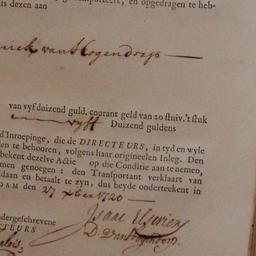 en opgedragen te heb-
ts dezen aan
van Hogendorp
van vyf duizend guld. courant geld van 20 stuiv. 't stuk
vyff Duizend guldens
d'Inroepinge, die de DIRECTEURS, in tyd en wyle
len te behooren, volgens haar origineelen Inleg. Den
bekent dezelve Actie op die Conditie aan te nemen,
men genoegen: den Transportant verklaart van
daan en betaalt te zyn, dus beyde onderteekent in
DAM den 27 xber 1720
dergeschrevene
CTEURS
D. van Hogendorp